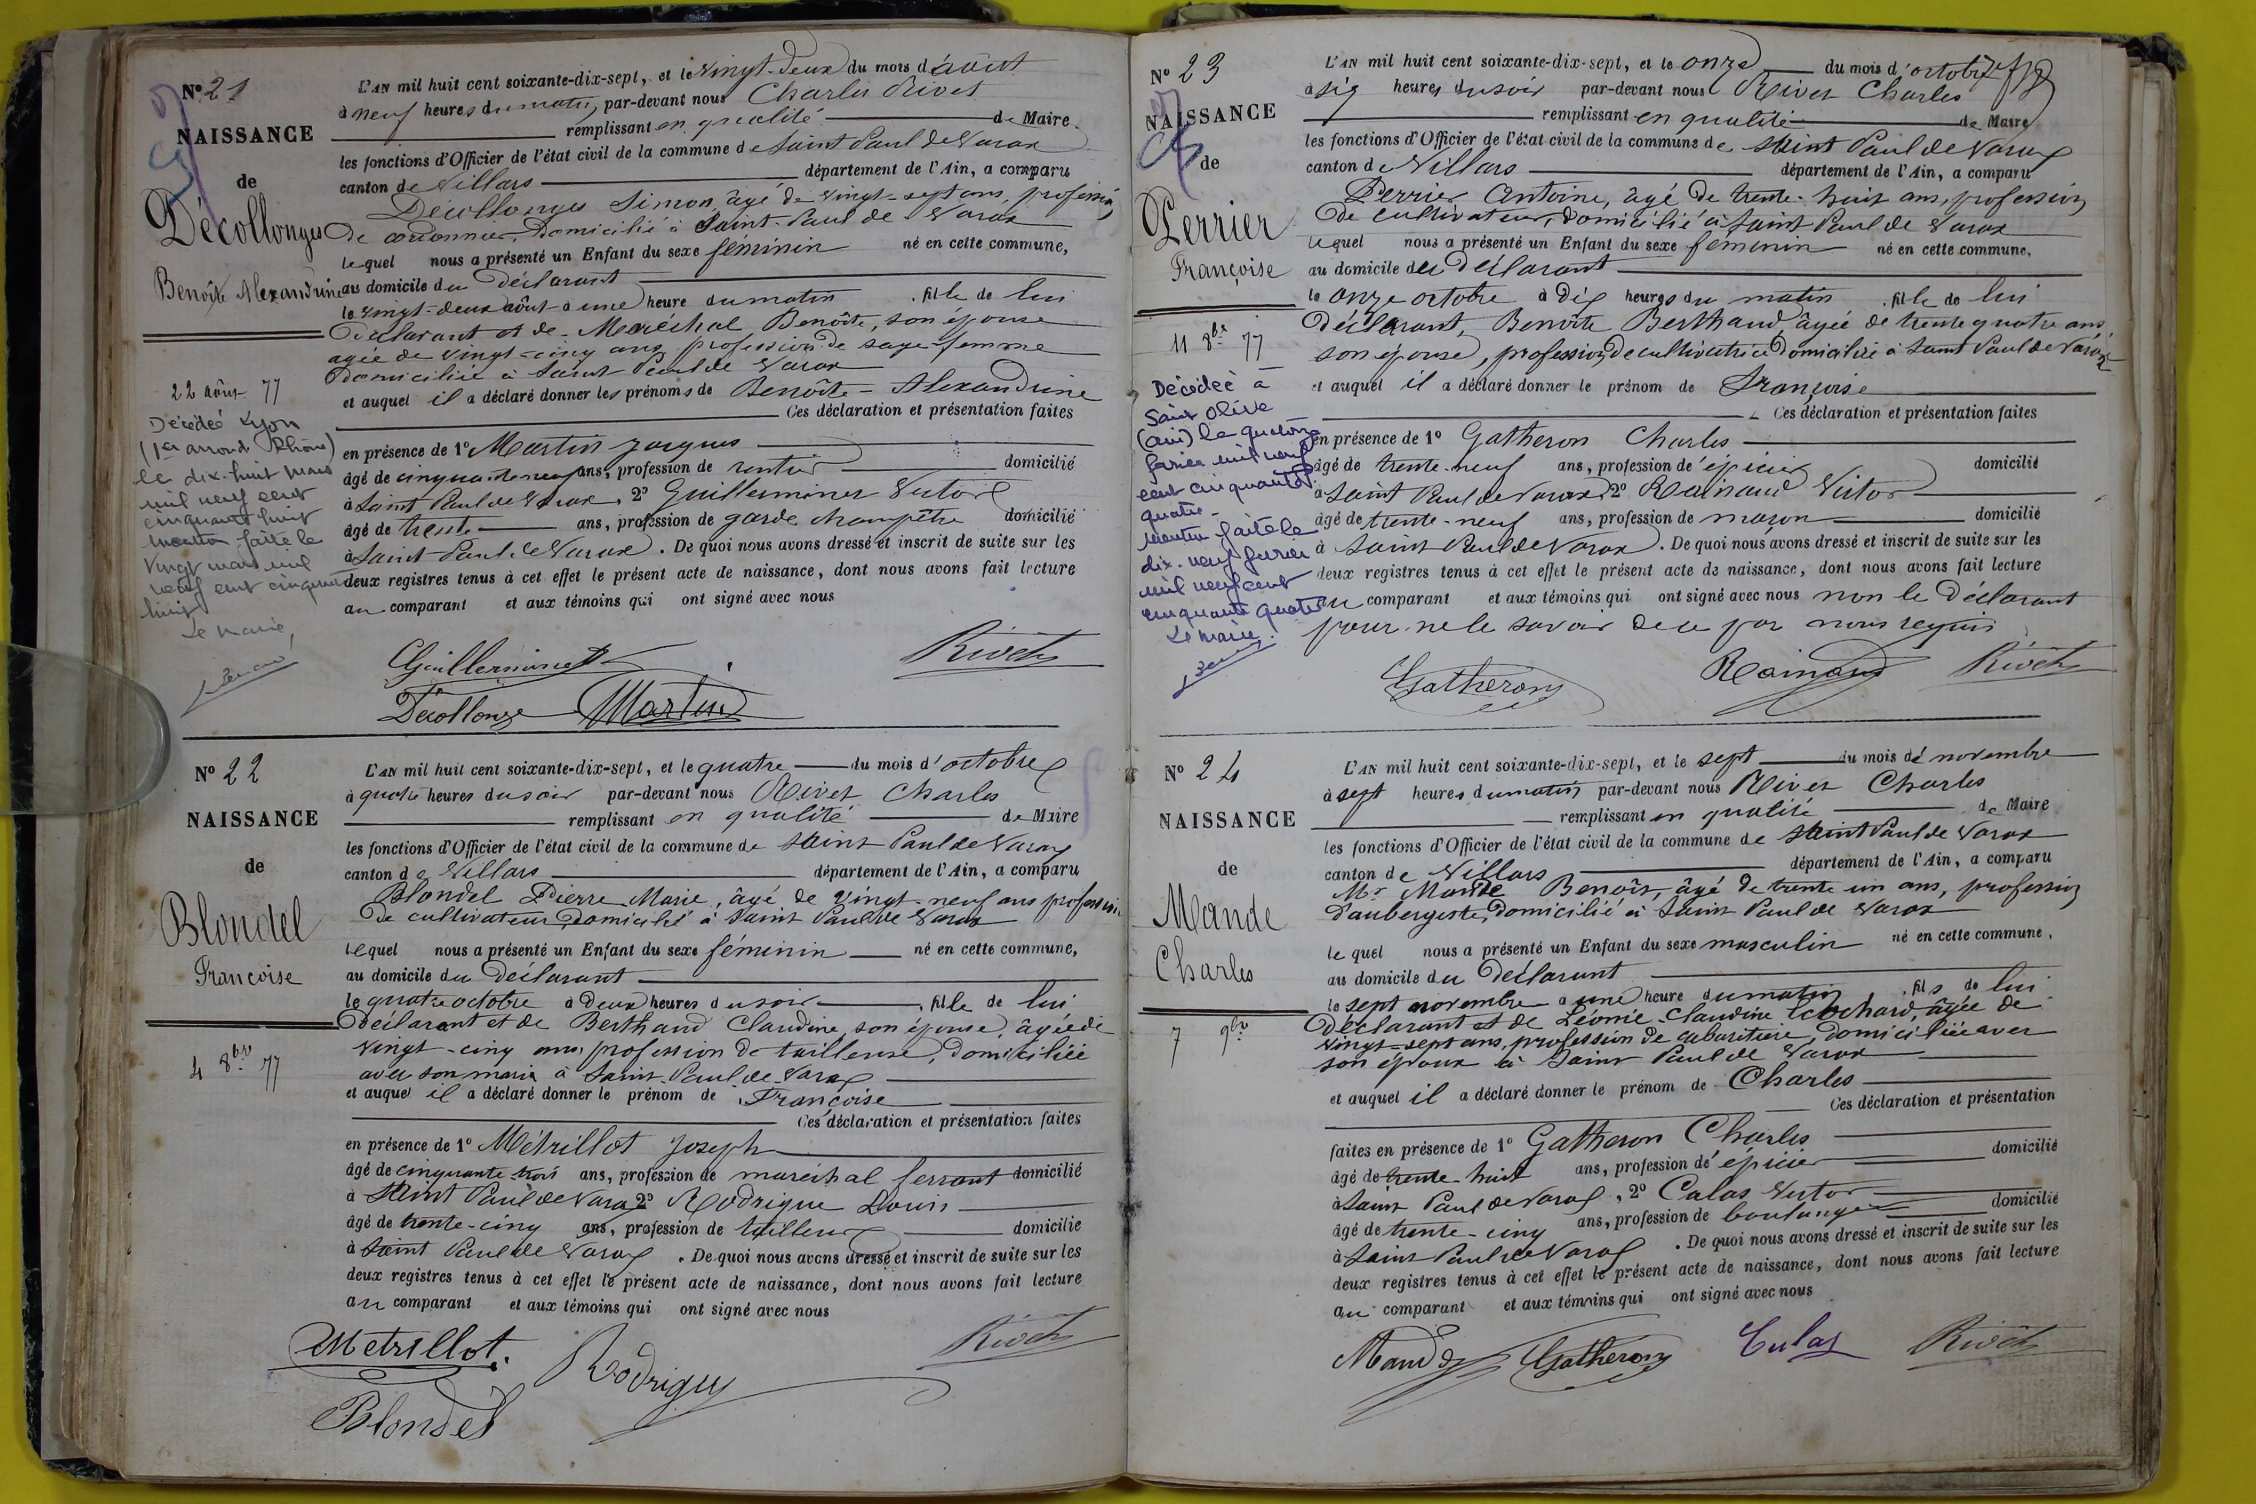 N° 21
NAISSANCE
de
Décollonges
Benoîte Alexandrine
22 août 77
Décédée Lyon
(1er arrond Rhône)
le dix-huit mars
mil neuf cent
cinquante huit
mention faite le
vingt mars mil
neuf cent cinquante
huit
Le Maire,
L'AN mil huit cent soixante-dix-sept, et le vingt-deux du mois d'août
à neuf heures du matin, par-devant nous Charles Rivet
remplissant en qualité de Maire
les fonctions d'Officier de l'état civil de la commune de Saint Paul de Varax
canton de Villars département de l'Ain, a comparu
Décollonges Simon, âgé de vingt-sept ans, profession
de cordonnier, domicilié à Saint-Paul de Varax
lequel nous a présenté un Enfant du sexe féminin né en cette commune,
au domicile du déclarant
le vingt-deux août à une heure du matin, fille de lui
déclarant et de Maréchal Benoîte, son épouse
agée de vingt-cinq ans, profession de sage-femme
domiciliée à Saint Paul de Varax
et auquel il a déclaré donner les prénoms de Benoîte-Alexandrine
Ces déclaration et présentation faites
en présence de 1° Martin Jacques
âgé de cinquante neuf ans, profession de rentier domicilié
à Saint Paul de Varax, 2° Guillerminet Victor
âgé de trente ans, profession de garde champêtre domicilié
à Saint Paul de Varax. De quoi nous avons dressé et inscrit de suite sur les
deux registres tenus à cet effet le présent acte de naissance, dont nous avons fait lecture
au comparant et aux témoins qui ont signé avec nous
Guillerminet Rivet
Décollonge Martin
N° 22
NAISSANCE
de
Blondel
Francoise
4 8bre 77
L'AN mil huit cent soixante-dix-sept, et le quatre du mois d'octobre
à quatre heures du soir par-devant nous Rivet Charles
remplissant en qualité de Maire
les fonctions d'Officier de l'état civil de la commune de Saint Paul de Varax
canton de Villars département de l'Ain, a comparu
Blondel Pierre Marie, âgé de vingt-neuf ans profession
de cultivateur, domicilié à Saint Paul de Varax
lequel nous a présenté un Enfant du sexe féminin né en cette commune,
au domicile du déclarant
le quatre octobre à deux heures du soir, fille de lui
déclarant et de Berthaud Claudine, son épouse, âgée de
vingt-cinq ans, profession de tailleuse, domiciliée
avec son mari à Saint-Paul de Varax
et auquel il a déclaré donner le prénom de Françoise
Ces déclaration et présentation faites
en présence de 1° Métrillot Joseph
âgé de cinquante-trois ans, profession de maréchal ferrant domicilié
à Saint Paul de Varax 2° Rodrigue Louis
âgé de trente-cinq ans, profession de tailleur domicilié
à Saint Paul de Varax. De quoi nous avons dressé et inscrit de suite sur les
deux registres tenus à cet effet le présent acte de naissance, dont nous avons fait lecture
au comparant et aux témoins qui ont signé avec nous
Metrillot. Rodrigue Rivet
Blondel
N° 23
NAISSANCE
de
Perrier
Françoise
11 8bre 77
Décédée à
Saint Olive
(ain) le quatorze
février mil neuf
cent cinquante
quatre -
Mention faite le
dix-neuf fevrier
mil neuf cent
cinquante quatre
Le Maire.
L'AN mil huit cent soixante-dix-sept, et le onze du mois d'octobre
à six heures du soir par-devant nous Rivet Charles
remplissant en qualité de Maire
les fonctions d'Officier de l'état civil de la commune de Saint Paul de Varax
canton de Villars département de l'Ain, a comparu
Perrier Antoine, âgé de trente-huit ans, profession
de cultivateur, domicilié à Saint Paul de Varax
lequel nous a présenté un Enfant du sexe féminin né en cette commune,
au domicile du déclarant
le onze octobre à dix heures du matin, fille de lui
déclarant, Benoîte Berthaud, âgée de trente quatre ans,
son épouse, profession de cultivatrice domiciliée à Saint Paul de Varax
et auquel il a déclaré donner le prénom de Françoise
Ces déclaration et présentation faites
en présence de 1° Gatheron Charles
âgé de trente-neuf ans, profession d'épicier domicilié
à Saint Paul de Varax 2° Rainaud Victor
âgé de trente-neuf ans, profession de maçon domicilié
à Saint Paul de Varax. De quoi nous avons dressé et inscrit de suite sur les
deux registres tenus à cet effet le présent acte de naissance, dont nous avons fait lecture
au comparant et aux témoins qui ont signé avec nous non le déclarant
pour ne le savoir de ce par nous requis
Gatheron Rainaud Rivet
N° 24
NAISSANCE
de
Mande
Charles
7 9bre
L'AN mil huit cent soixante-dix-sept, et le sept du mois de novembre
à sept heures du matin par-devant nous Rivet Charles
remplissant en qualité de Maire
les fonctions d'Officier de l'état civil de la commune de Saint Paul de Varax
canton de Villars département de l'Ain, a comparu
Mr Mande Benoît, âgé de trente un ans, profession
d'aubergiste, domicilié à Saint Paul de Varax
lequel nous a présenté un Enfant du sexe masculin né en cette commune,
au domicile du déclarant
le sept novembre à une heure du matin, fils de lui
déclarant et de Léonie Claudine Cochard, âgée de
vingt-sept ans, profession de cabaretière, domiciliée avec
son époux à Saint Paul de Varax
et auquel il a déclaré donner le prénom de Charles
Ces déclaration et présentation
faites en présence de 1° Gatheron Charles
âgé de trente-huit ans, profession d'épicier domicilié
à Saint Paul de Varax, 2° Calas Victor
âgé de trente-cinq ans, profession de boulanger domicilié
à Saint Paul de Varax. De quoi nous avons dressé et inscrit de suite sur les
deux registres tenus à cet effet le présent acte de naissance, dont nous avons fait lecture
au comparant et aux témoins qui ont signé avec nous
Mande Gatheron Culas Rivet